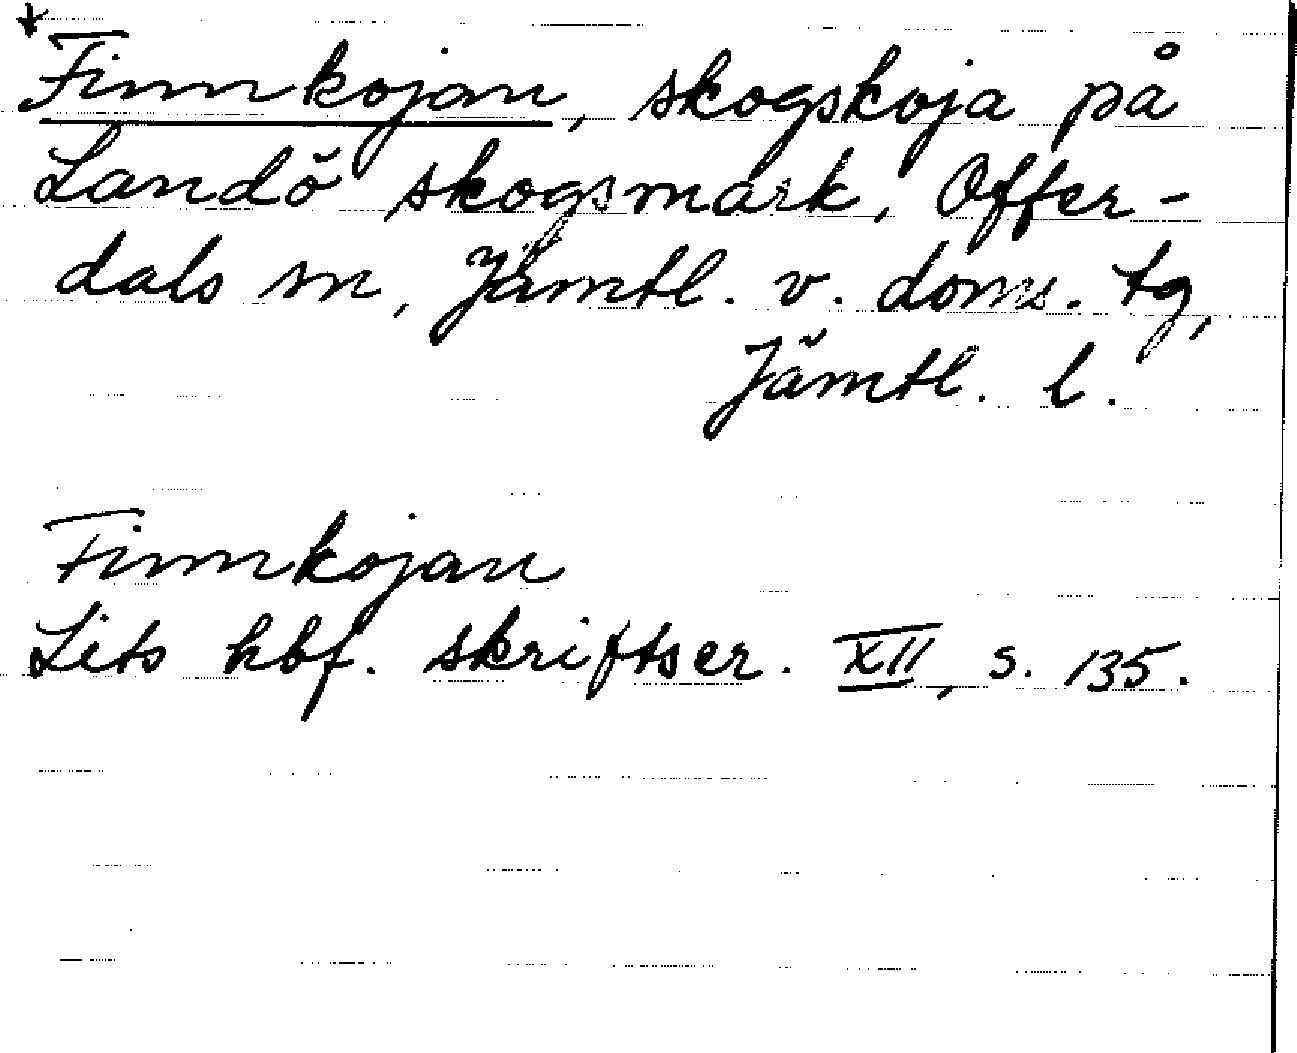 +
Finnkojan, skogskoja på
Landö skogsmark, Offer-
dals sn, Jämtl. v. doms. tg,
Jämtl. l.
Finnkojan
Lits hbf. skriftser. XII, s. 135.